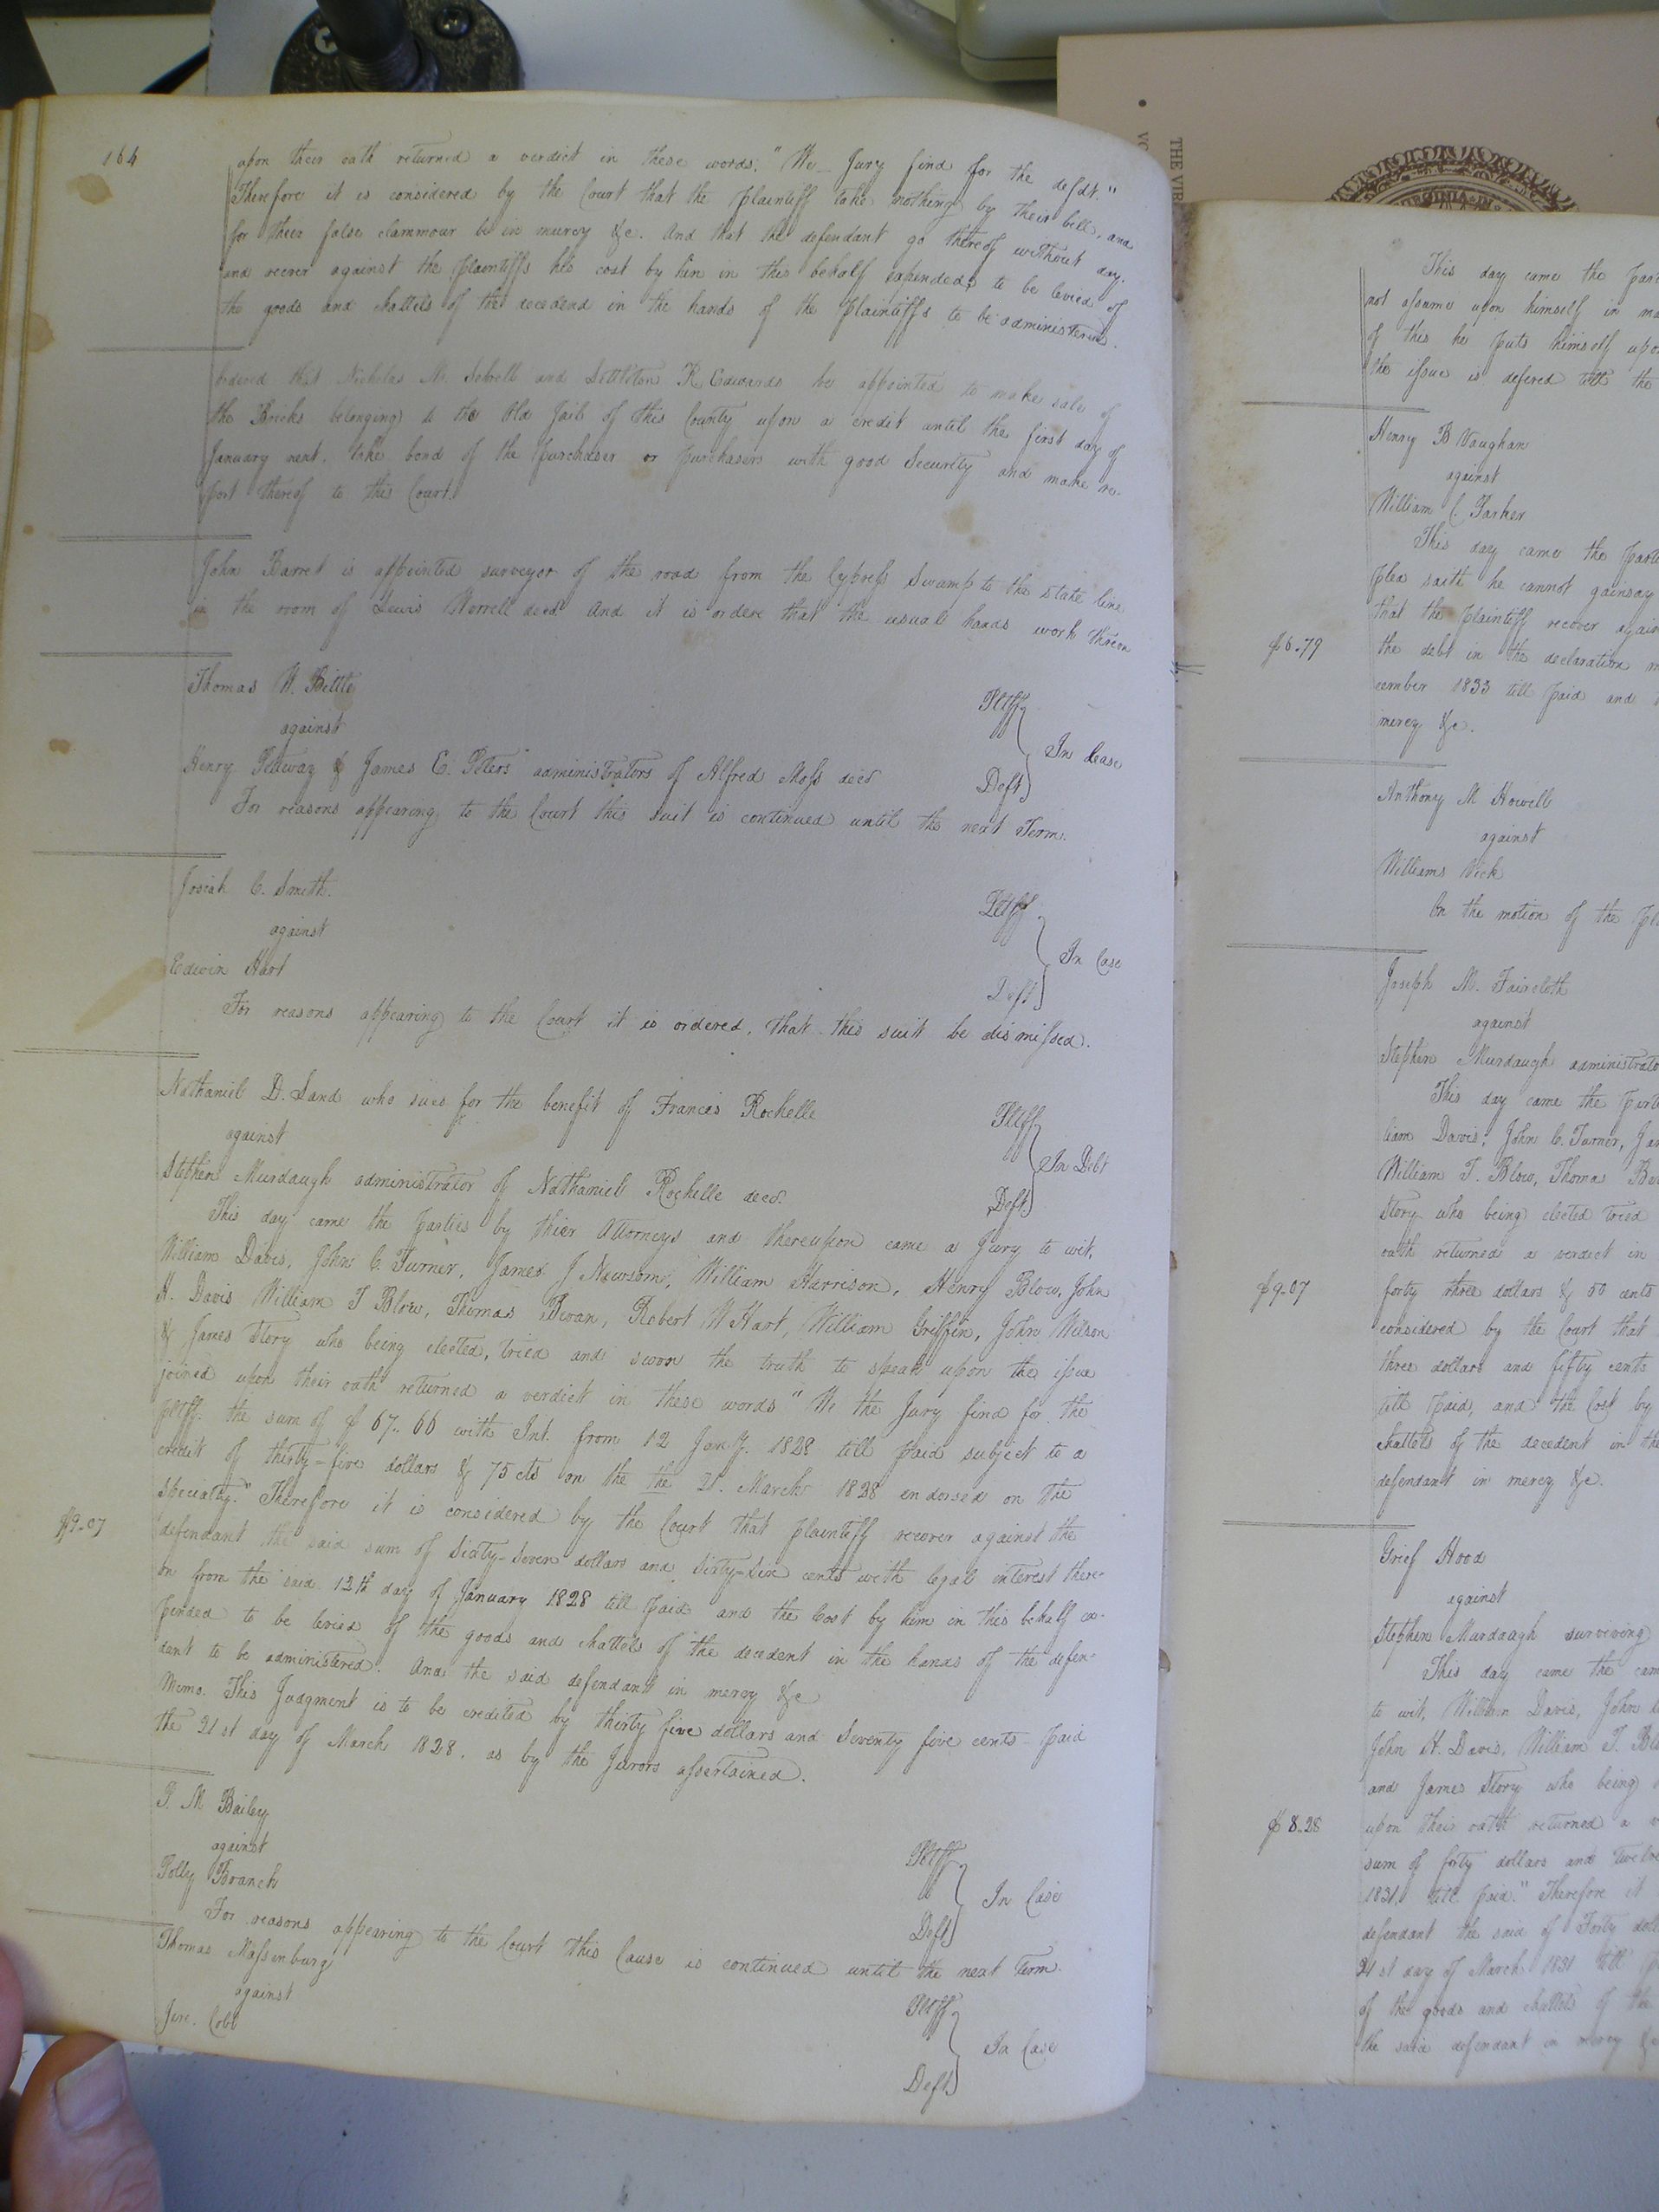 164
upon their oath returned a verdict in these words. "We Jury find for the defdt."
Therefore it is considered by the Court that the plaintiff take nothing by their bill, and
for their false clammour be in mercy &c. And that the defendant go thereof without day.
and recover against the plaintiffs his cost by him in this behalf expended, to be levied of
the goods and chattels of the decedend in the hands of the plaintiffs to be administered.
Ordered that Nicholas M. Sebrell and Littleton R Edwards be appointed to make sale of
the Bricks belonging to the Old Jail of this County upon a credit until the first day of
January next. take bond of the purchaser or purchasers with good Security and make re-
port thereof to this Court.
John Barret is appointed surveyor of the road from the Cypress Swamp to the state line
in the room of Lewis Worrell decd. And it is ordere that the usual hands work threon
Thomas W. Bittle Pltff
against In Case
Henry Pettway & James E. Peters administrators of Alfred Moss decd Deft
For reasons appearing to the Court this suit is continued until the next Term.
Josiah C. Smith. Pltff
against In Case
Edwin Hart Deft
For reasons appearing to the Court it is ordered, that this suit be dismissed.
Nathaniel D. Land who sues for the benefit of Frances Rochelle Pltff
against In Debt
Stephen Murdaugh administrator of Nathaniel Rochelle decd. Deft
This day came the parties by thier Attorneys and thereupon came a Jury to wit,
William Davis, John C. Turner, James J Newsom, William Harrison, Henry Blow, John
H. Davis William T Blow, Thomas Bevan, Robert W Hart, William Griffin, John Wilson
& James Story who being elected, tried and sworn the truth to speak upon the issue
joined upon their oath returned a verdict in these words "We the Jury find for the
pltff. the sum of $67..66 with Int. from 12 Jany. 1828 till paid subject to a
credit of thirty-five dollars & 75 cts on the the 21. March 1828 endorsed on the
specialty." Therefore it is considered by the Court that plaintiff recover against the
$9-07
defendant the said sum of Sixty-Seven dollars and Sixty-Six cents with legal interest there-
on from the said 12th day of January 1828 till paid and the Cost by him in this behalf ex-
pended to be levied of the goods and chattels of the decedent in the hands of the defen-
dant to be administered. And the said defendant in mercy &c
Memo. This Judgment is to be credited by thirty five dollars and Seventy five cents paid
the 21st day of March 1828. as by the Jurors assertained.
P. M Bailey Pltff
against In Case
Polly Branch Deft
For reasons appearing to the Court this Cause is continued until the next Term.
Thomas Massenburg Pltff
against In Case
Jere. Cobb Deft
THE VIR
This day came the par
not assume upon himself in ma
of this he puts himself upo
the issue is defered till the
Henry B Vaughan
against
William C. Parker
This day came the parti
plea saith he cannot gainsay
that the plaintiff recover again
$6-79
the debt in the declaration m
cember 1833 till paid and
mercy &c.
Anthony M Howell
against
Williams Vick
On the motion of the pl
Joseph M. Faircloth
against
Stephen Murdaugh administrato
This day came the parti
liam Davis, John C. Turner, Ja
William T. Blow, Thomas Be
Story who being elected tried
oath returned a verdict in
$9-07
forty three dollars & 50 cents
considered by the Court that
three dollars and fifty cents
till paid, and the Cost by
chattels of the decedent in the
defendant in mercy &c.
Grief Hood
against
Stephen Murdaugh surveving
This day came the cam
to wit, William Davis, John
John H. Davis, William T. Bl
and James Story who being
$8-28
upon their oath returned a
sum of forty dollars and twelve
1831 till paid." Therefore it
defendant the said of Forty doll
21st day of March 1831 till
of the goods and chattels of the
the said defendant in mercy &c